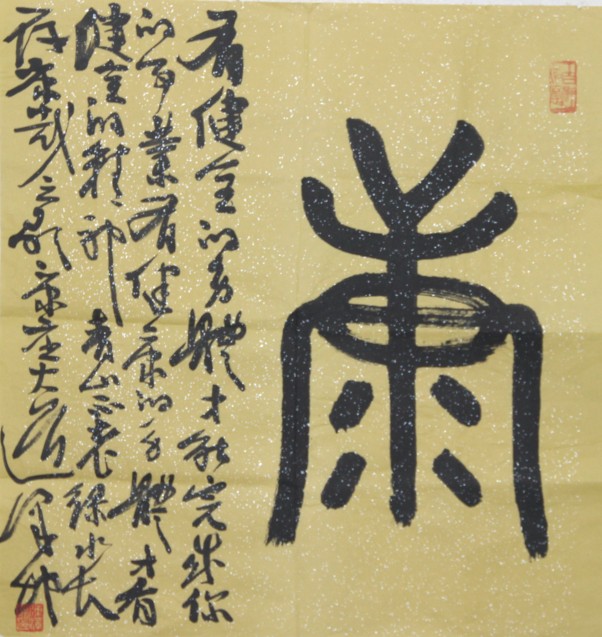 康
有健全的身體才能完成你
的事業有健康的身體才有
健全的精神青山不老綠水長
存康哉之歌康庄大道